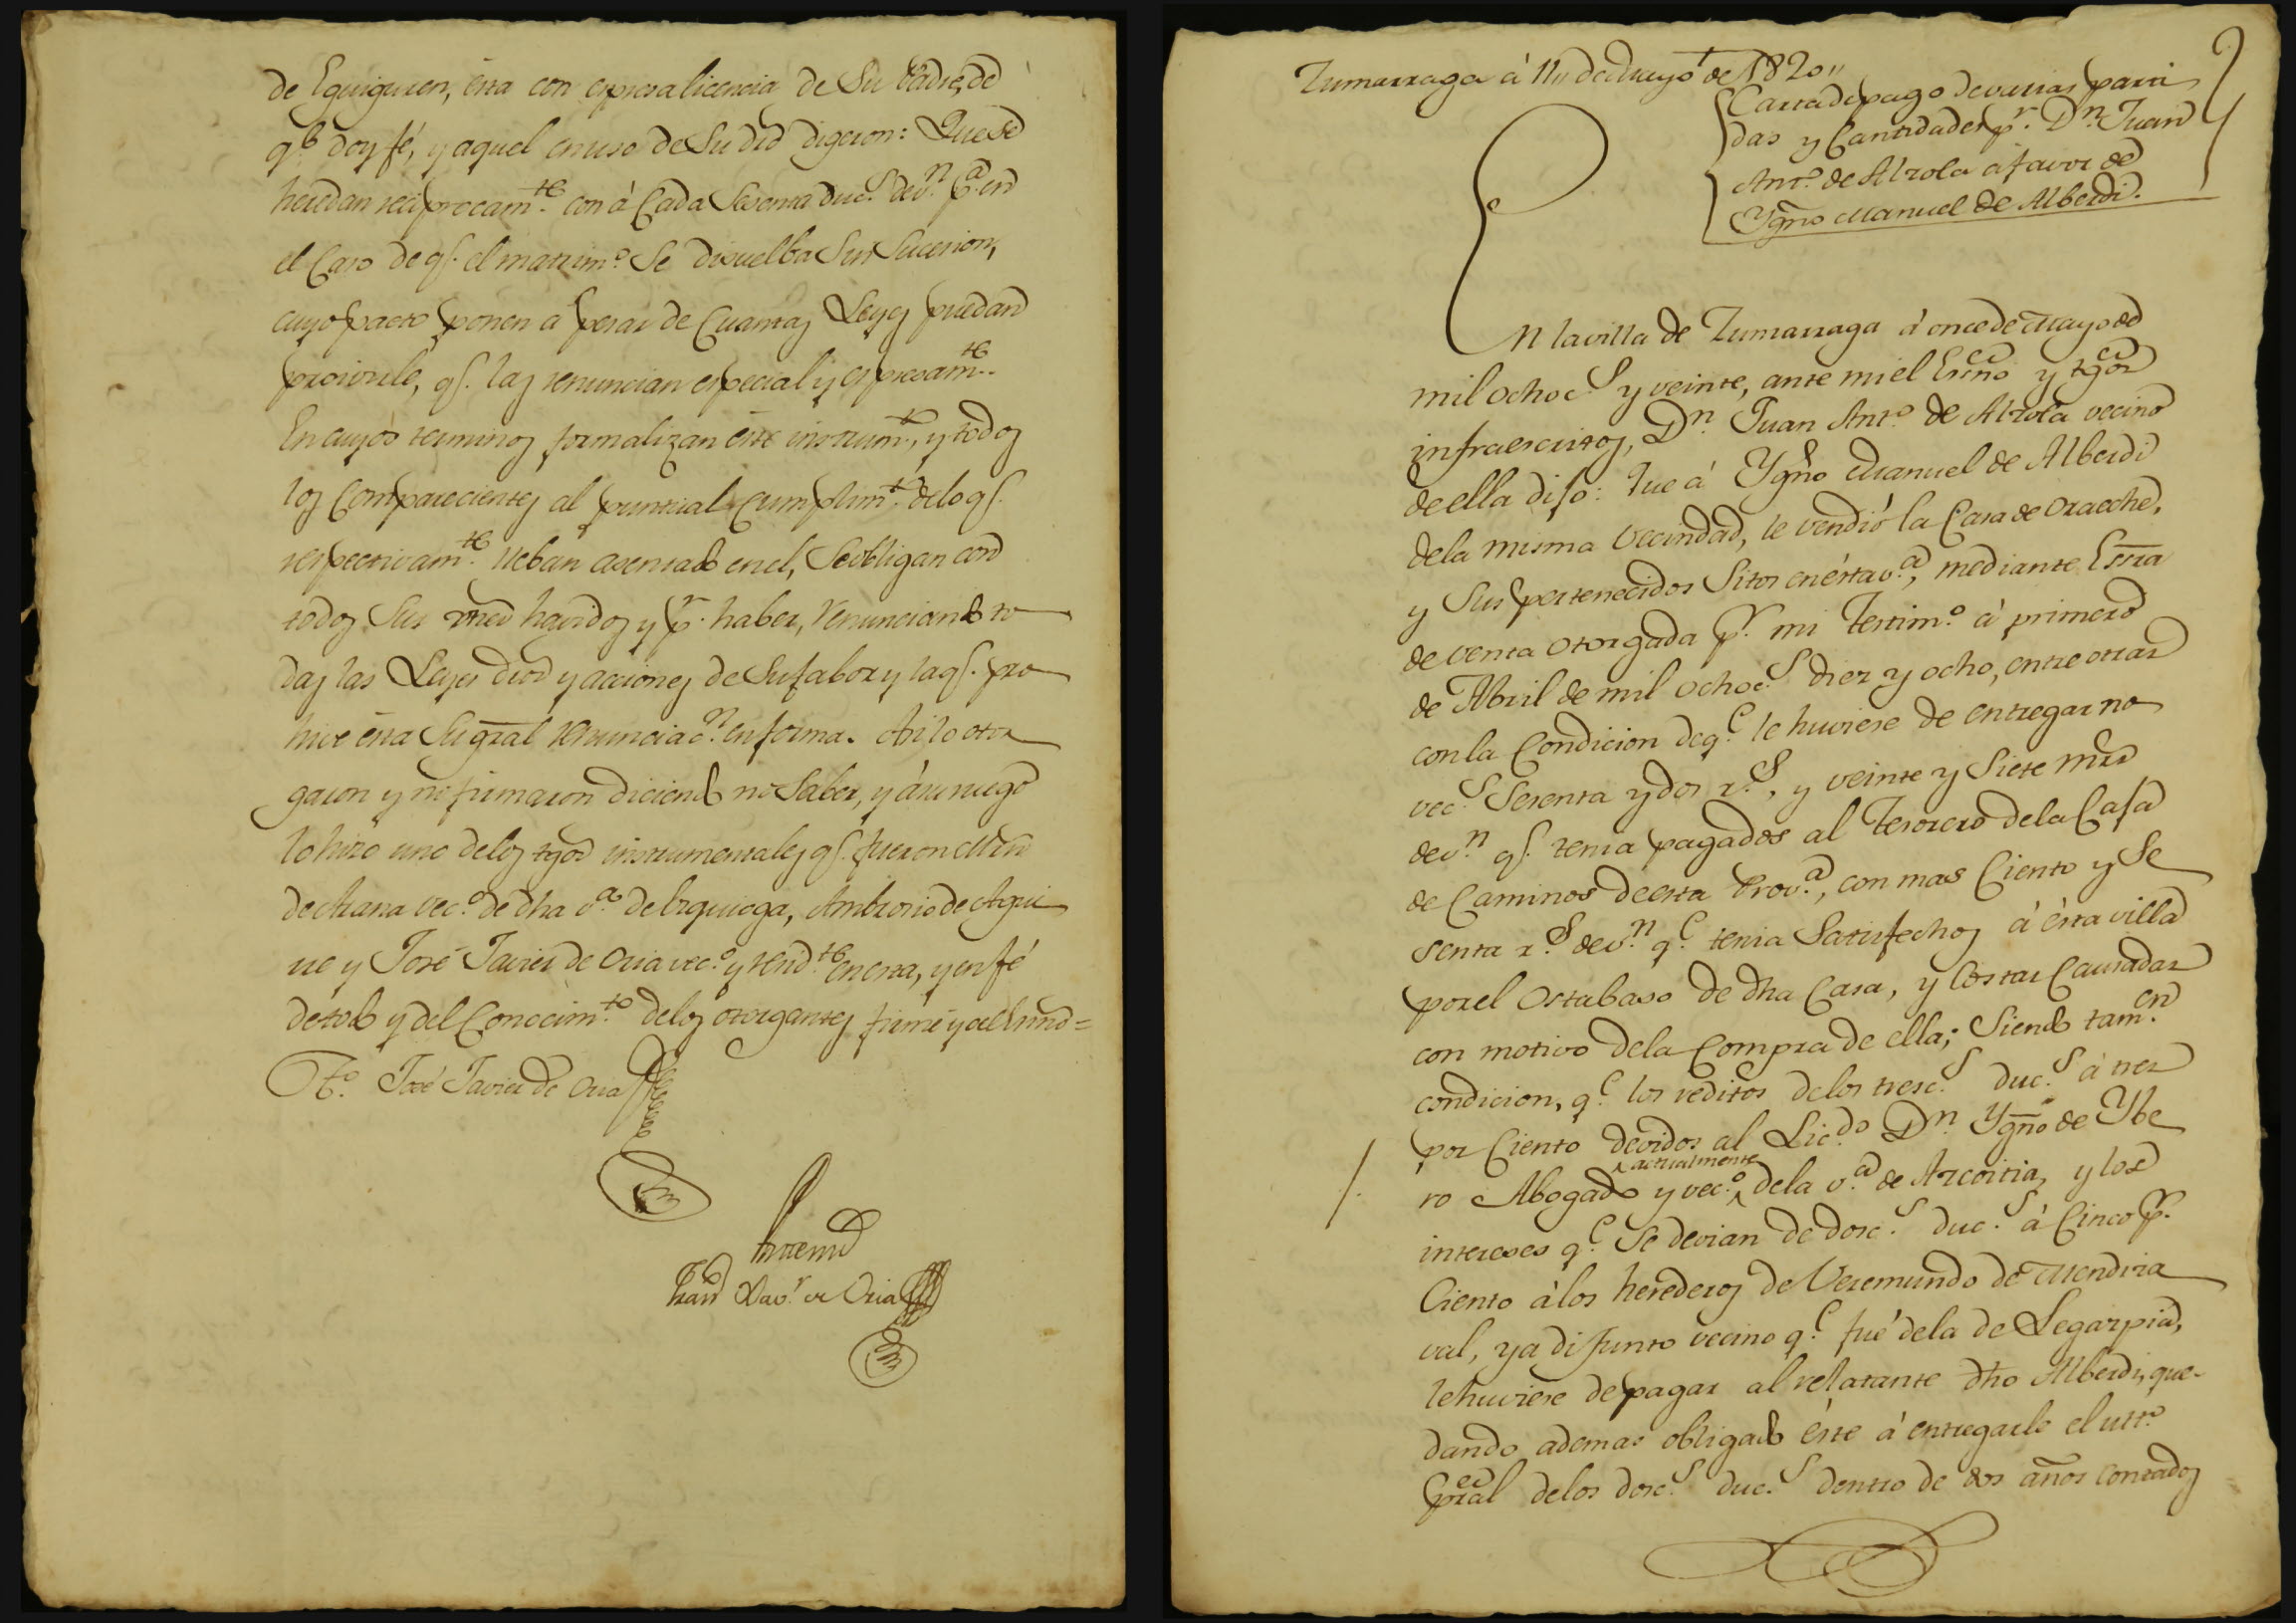 de Eguiguren, ésta con expresa licencia de Su Padre, de
q.e doy fé, y aquel en uso de Su dro digeron: Que se
heredan reciprocam.te con à Cada Sesenta duc.s de v.n p.a en
el Caso de q.e el matrim.o Se disuelba Sin Sucesion,
cuyo pacto ponen a pesar de Cuantas Leyes puedan
proivirle, q.e las renuncian especial y expresam.te
En cuyos terminos formalizan éste instrum.to, y todos
los Comparecientes al puntual cumplim.to de lo q.e
respectivam.te lleban asentado en el, Se obligan con
todos Sus vnes havidos y p.r haber, renunciando to
das las Leyes dros y acciones de Su fabor y la q.e pro
hive ésta Su gral renunciac.n en forma. Asi lo otor
garon y no firmaron diciendo no Saber, y à su ruego
lo hizo uno de los tgos instrumentales q.e fueron Mrn
de Arana vec.o de dha v.a de Ezquioga, Ambrosio de Agui
rre y José Javier de Oria vec.o y resid.te en esta, y en fé
de todo y del Conocim.to de los otorgantes firmé yo el Esno =
T.o José Javier de Oria
Ante mi
Fran Xav.r de Oria
Zumarraga à 11,, de Mayo de 1820,,
Carta de pago de varias parti
das y Cantidades p.r D.n Juan
Ant.o de Alzola à favor de
Ygno Manuel de Alberdi.
En la villa de Zumarraga à once de Mayo de
mil ochoc.s y veinte, ante mi el Esno y tgos
infraescritos, D.n Juan Ant.o de Alzola vecino
de ella dijo: Que á Ygno Manuel de Alberdi
de la misma Vecindad, le vendió la Casa de Oraeche,
y Sus pertenecidos Sitos en ésta v.a, mediante Esra
de venta otorgada p.r mi Testim.o à primero
de Abril de mil ochoc.s diez y ocho, entre otras
con la Condicion de q.e le huviese de entregar no
vec.s Sesenta y dos r.s, y veinte y Siete mrs
de v.n q.e tenia pagados al Tesorero de la Casa
de Caminos de esta Prov.a, con mas Ciento y Se
senta r.s de v.n q.e tenia Satisfechos à ésta villa
por el Ostabaso de dha Casa, y Costas Causadas
con motivo de la Compra de ella; Siendo tam.en
condicion, q.e los reditos de los tresc.s duc.s à tres
por Ciento devidos al Lic.do D.n Ygno de Ybe
ro Abogado y vec.o actualmente de la v.a de Azcoitia, y los
intereses q.e Se devian de dosc.s duc.s à Cinco p.r
Ciento à los herederos de Veremundo de Mendiza
val, ya difunto vecino q.e fué de la de Legazpia,
le huviese de pagar al relatante dho Alberdi, que-
dando ademas obligado éste à entregarle el
pral de los dosc.s duc.s dentro de dos años contados